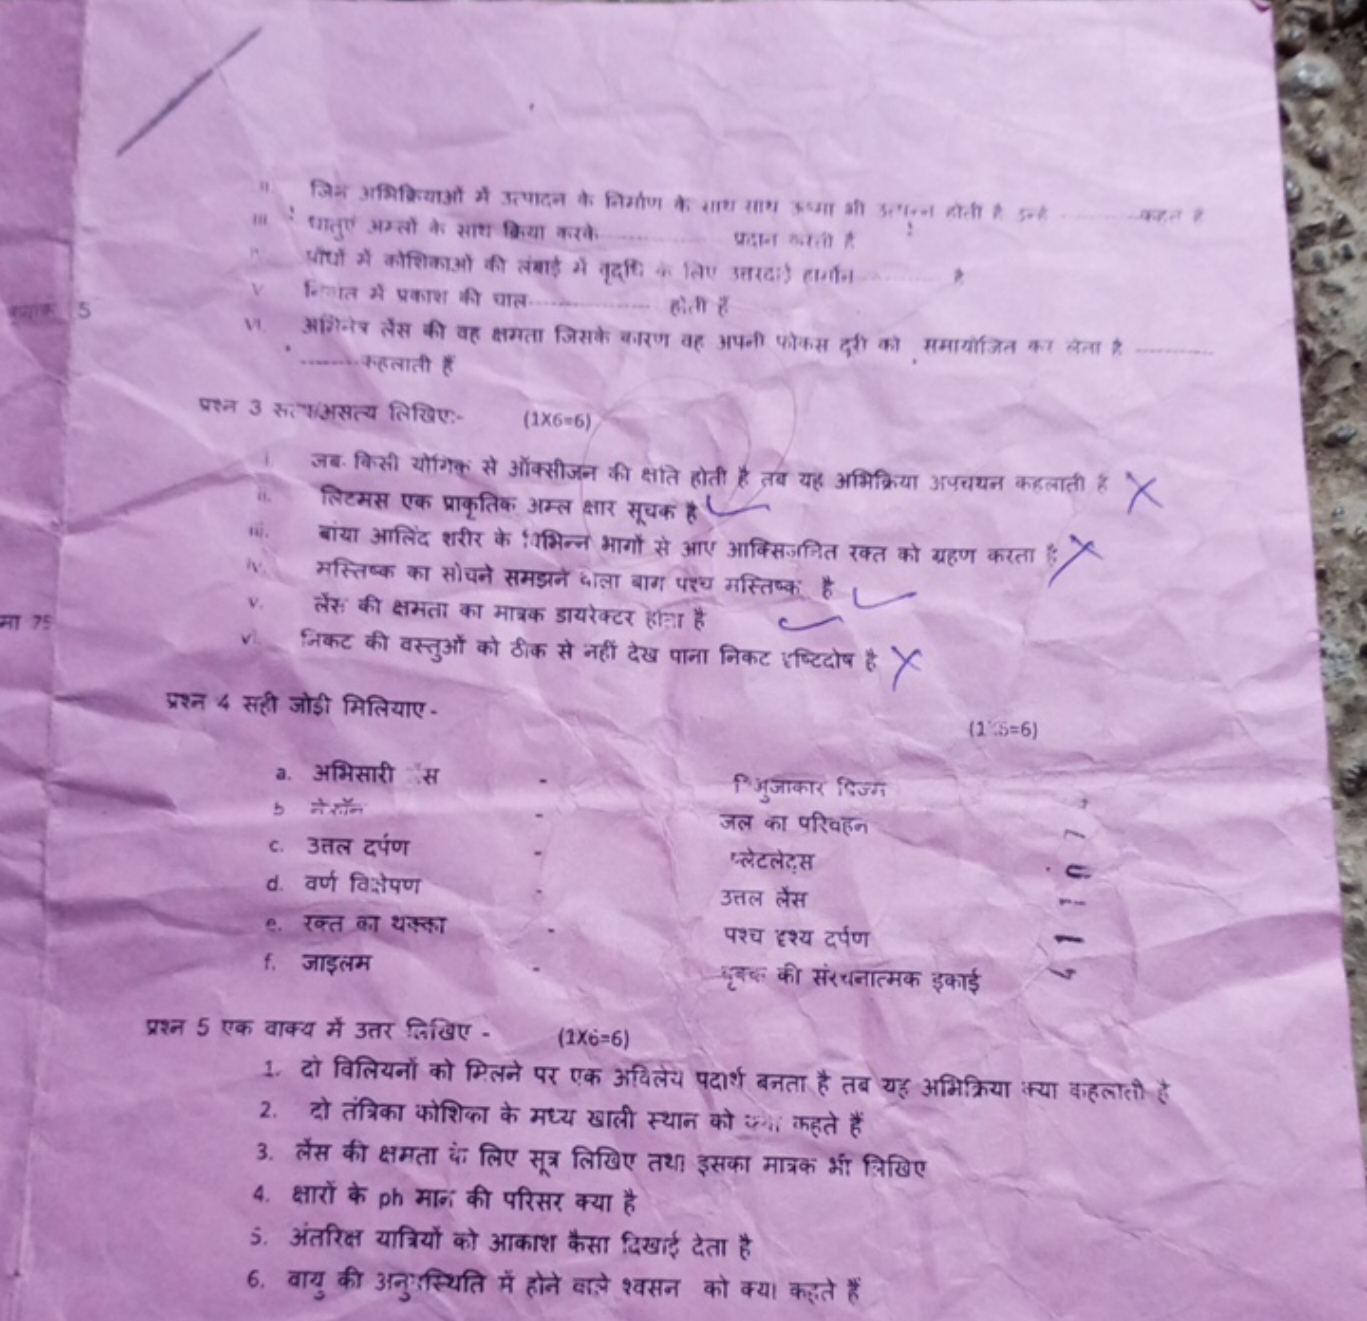 ii. जिन अभिक्रियाओं में उत्पादन के निर्माण के साथ साथ ऊष्मा भी उत्पन्न होती है उन्हे ............कहते है
iii. धातुएं अम्लों के साथ क्रिया करके.................. प्रदान करती है
पौधों में कोशिकाओं की लंबाई में वृद्धि के लिए उत्तरदाई हार्मोन ............ है
v निर्वात में प्रकाश की चाल.................. होती हैं
5
vi. अभिनेत्र लेंस की वह क्षमता जिसके कारण वह अपनी फोकस दूरी को समायोजित कर लेता है ............
.........कहलाती हैं
प्रश्न 3 सत्य/असत्य लिखिए:- (1X6=6)
i. जब किसी योगिक से ऑक्सीजन की क्षति होती है तब यह अभिक्रिया अपचयन कहलाती है X
ii. लिटमस एक प्राकृतिक अम्ल क्षार सूचक है ✓
iii. बांया आलिंद शरीर के विभिन्न भागों से आए आक्सिजनित रक्त को ग्रहण करता है X
iv. मस्तिष्क का सोचने समझने वाला बाग पश्च मस्तिष्क है ✓
v. लेंस की क्षमता का मात्रक डायरेक्टर होता है ✓
मा 75
vi. निकट की वस्तुओं को ठीक से नहीं देख पाना निकट दृष्टिदोष है X
प्रश्न 4 सही जोड़ी मिलियाए -
(1X6=6)
a. अभिसारी लेंस - त्रिभुजाकार प्रिज्म
b नेफ्रॉन - जल का परिवहन
c. उत्तल दर्पण - प्लेटलेट्स
d. वर्ण विक्षेपण - उत्तल लेंस
e. रक्त का थक्का - पश्च दृश्य दर्पण
f. जाइलम - वृक्क की संरचनात्मक इकाई
प्रश्न 5 एक वाक्य में उत्तर लिखिए - (1X6=6)
1. दो विलियनों को मिलने पर एक अविलेय पदार्थ बनता है तब यह अभिक्रिया क्या कहलाती है
2. दो तंत्रिका कोशिका के मध्य खाली स्थान को क्या कहते हैं
3. लेंस की क्षमता के लिए सूत्र लिखिए तथा इसका मात्रक भी लिखिए
4. क्षारों के ph मान की परिसर क्या है
5. अंतरिक्ष यात्रियों को आकाश कैसा दिखाई देता है
6. वायु की अनुपस्थिति में होने वाले श्वसन को क्या कहते हैं